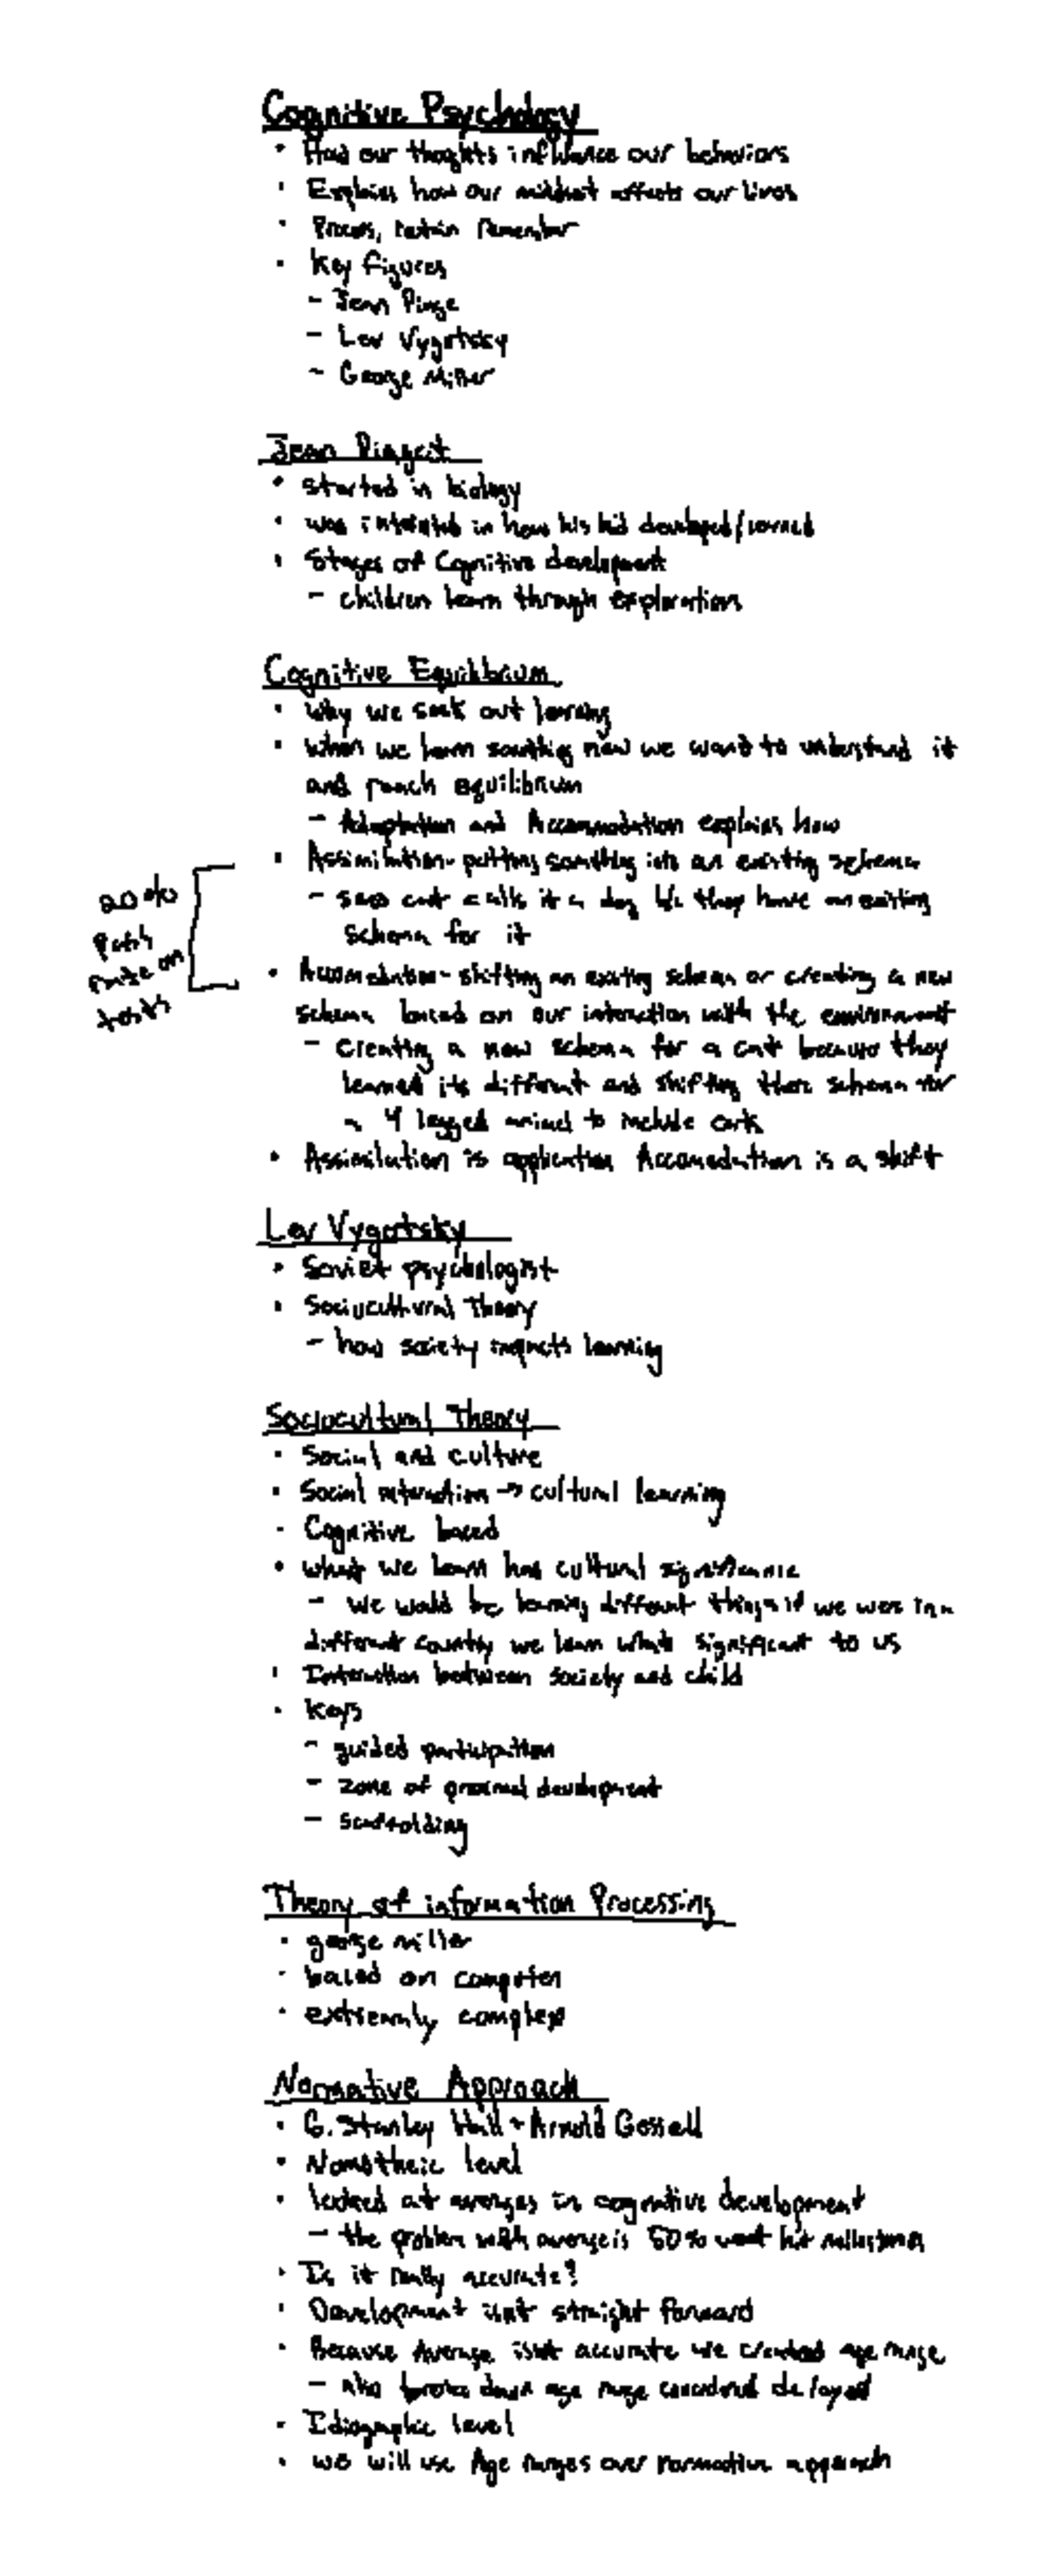 Cognitive Psychology
• How our thoghts influence our behaviors
• Explains how our mindset affects our lives
• Process, retain remember
• Key figures
- Jean Piage
- Lev Vygotsky
- George Miller
Jean Piageit
• started in biology
• was in how his kid developed/learned
• Stages of Cognitive development
- children learn through exploration
Cognitive Equilibrium
• Why we seek out learning
• when we learn something new we want to understand it
and reach equilibrium
- Adaptation and Accommodation explains how
• Assimilation- putting something into an existing schema
- sees cat calls it a dog b/c they have an existing
schema for it
20%
rate on
tests
• Accomodation- shifting an existing schema or creating a new
schema based on our interaction with the environment
- creating a new schema for a cat because they
learned its different and shifting their schema for
a 4 legged animal to include cats
• Assimilation is application Accomodation is a shift
Lev Vygotsky
• Soviet psychologist
• Sociocultural Theory
- how society impacts learning
Sociocultural Theory
• Social and culture
• Social interaction → cultural learning
• Cognitive based
• what we learn has cultural significance
- we would be learning different things if we were in a
different country we learn whats significant to us
• Interaction between society and child
• Keys
- guided participation
- zone of proximal development
- scaffolding
Theory of information Processing
• george miller
• based on computer
• extreamly complex
Normative Approach
• G. Stanley Hall + Arnold Gessell
• Nomotheic level
• looked at averages in cognative development
- the problem with average is 50% wont hit milestones
• Is it really accurate?
• Development isnt straight forward
• Because Average isnt accurate we created age range
- also broke down age range delayed
• Idiographic level
• we will use Age ranges over normative approach